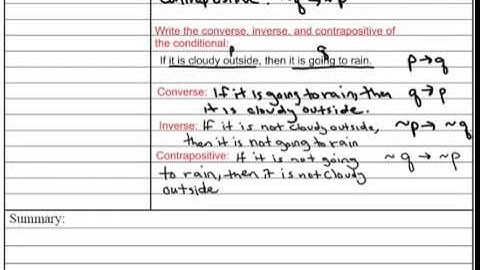 contrapositive: ~q → ~p
Write the converse, inverse, and contrapositive of
the conditional:
p q
If it is cloudy outside, then it is going to rain. p → q
Converse: If it is going to rain, then q → p
it is cloudy outside.
Inverse: If it is not cloudy outside, ~p → ~q
then it is not going to rain
Contrapositive: If it is not going ~q → ~p
to rain, then it is not cloudy
outside
Summary: